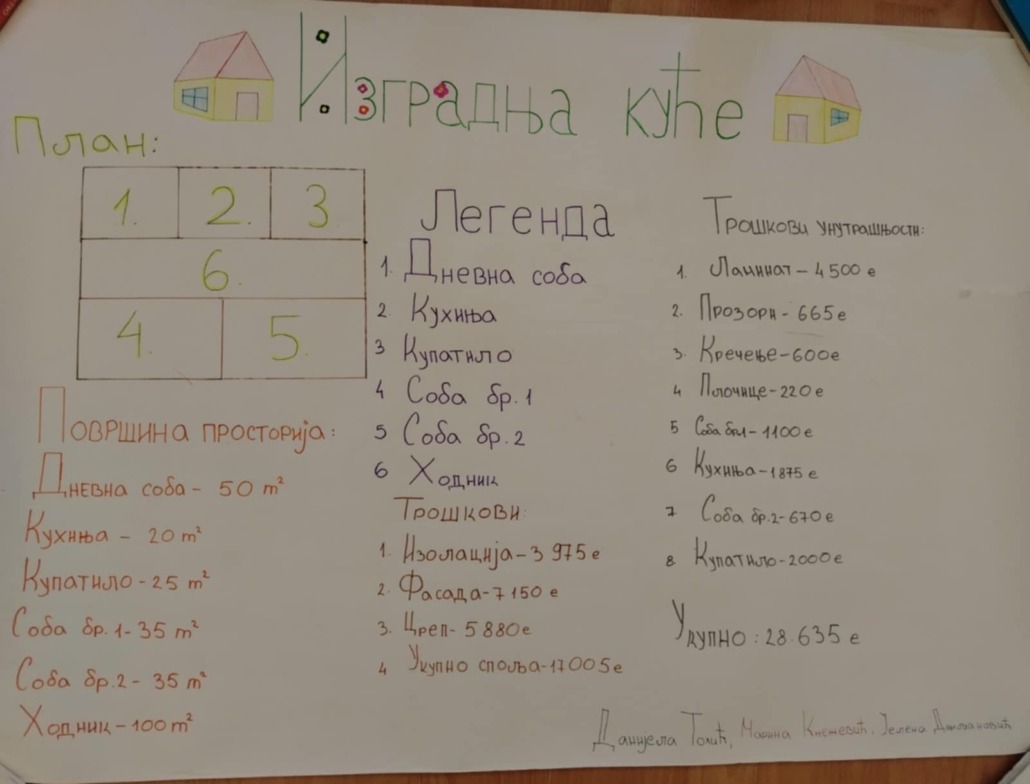 Изградња куће
План:
1. 2. 3
6.
4. 5.
Површина просторија:
Дневна соба - 50 m²
Кухиња - 20 m²
Купатило - 25 m²
Соба бр. 1 - 35 m²
Соба бр. 2 - 35 m²
Ходник - 100 m²
Легенда
1. Дневна соба
2. Кухиња
3 Купатило
4 Соба бр. 1
5 Соба бр. 2
6 Ходник
Трошкови:
1. Изолација - 3 975 е
2. Фасада - 7 150 е
3. Цреп - 5 880 е
4 Укупно споља - 17005 е
Трошкови унутрашњости:
1. Ламинат - 4 500 е
2. Прозори - 665 е
3. Кречење - 600 е
4 Плочице - 220 е
5 Соба бр.1 - 1100 е
6 Кухиња - 1875 е
7 Соба бр. 2 - 670 е
8. Купатило - 2000 е
Укупно: 28.635 е
Данијела Толић, Марина Кнежевић, Јелена